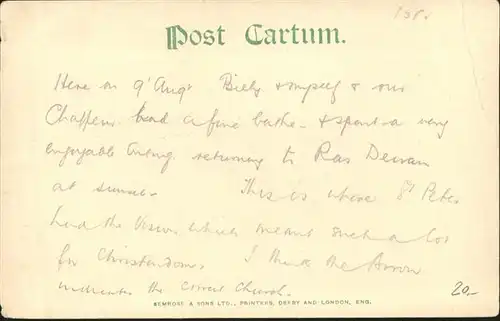 Post Cartum.
Here on 9' Augt Billy & myself & our
Chaffeur had a fine bathe - & spent a very
enjoyable outing returning to Ras Dewan
at sunset - This is where St Peter
had the Vision which meant such a lot
for Christendom. I think the Arrow
indicates the correct Church.
20-
BEMROSE & SONS LTD., PRINTERS, DERBY AND LONDON, ENG.